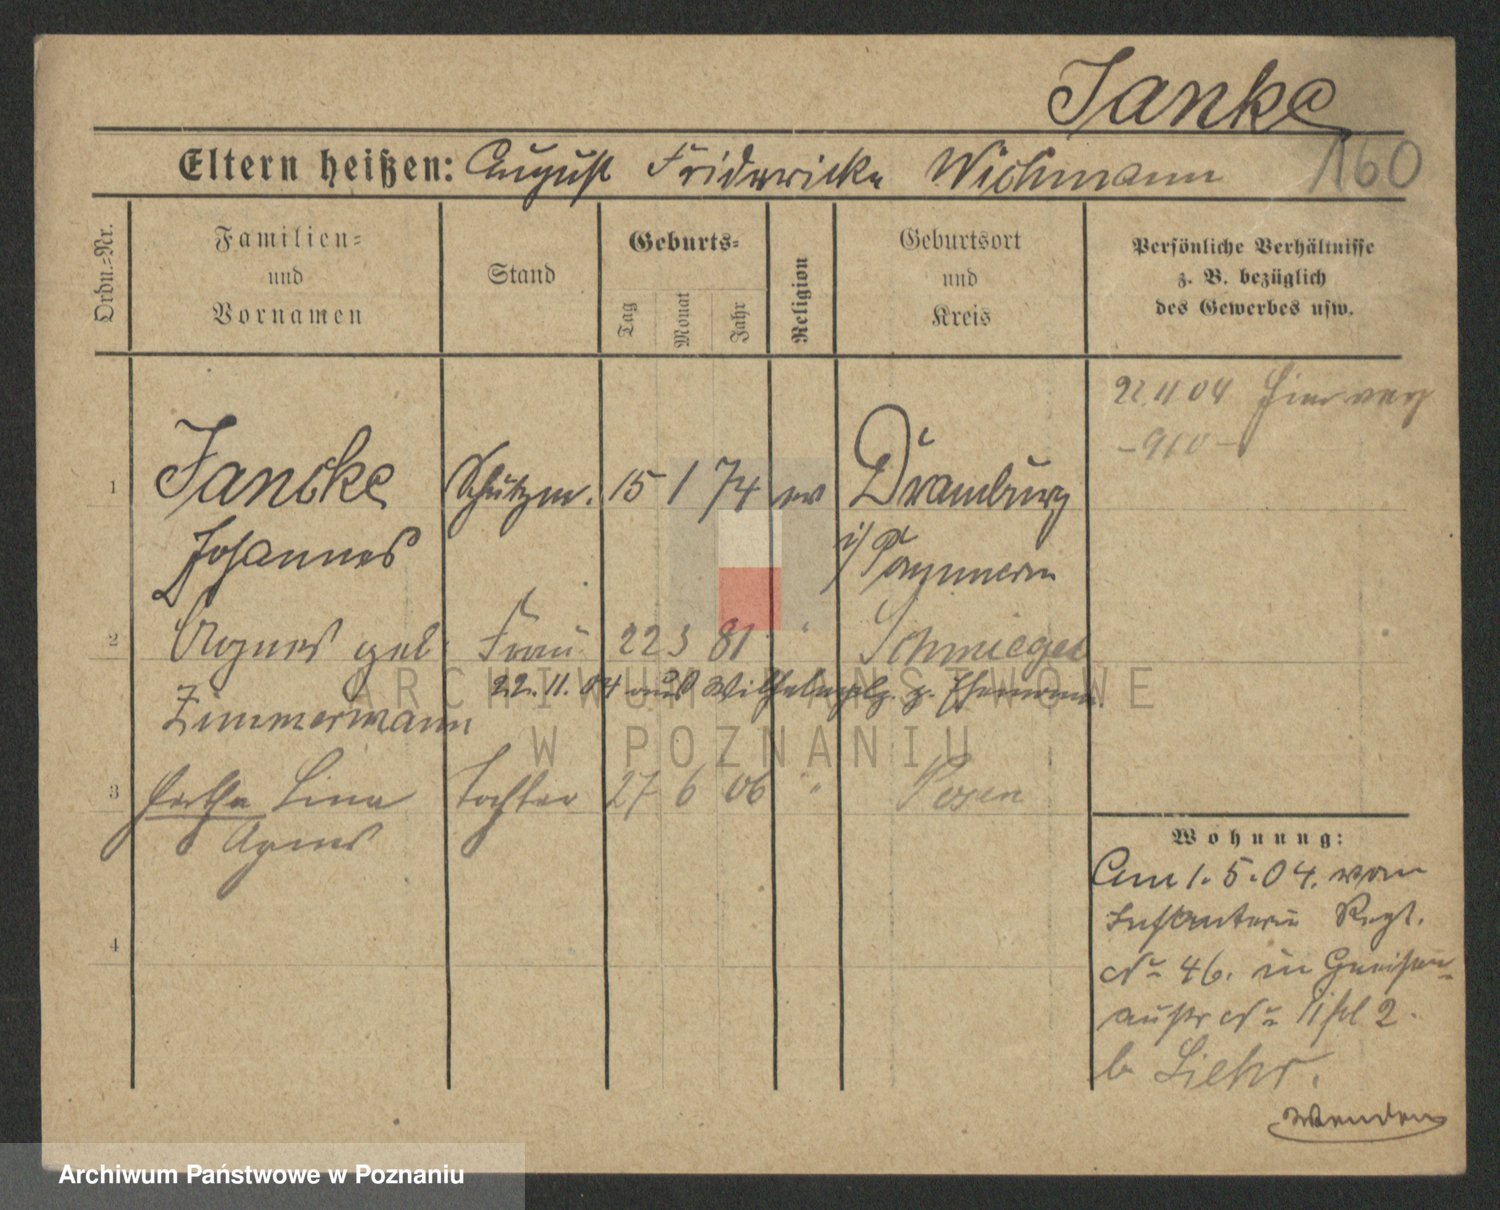 Janke
160
Eltern heißen: August Friderricke Wichmann
Ordn.-Nr.
Familien-
und
Vornamen
Stand
Geburts-
Tag
Monat
Jahr
Religion
Geburtsort
und
Kreis
Persönliche Verhältnisse
z. B. bezüglich
des Gewerbes usw.
22 11 04
- 910 -
1 Jancke Schutzm. 15 1 74 ev Dramburg
Johannes i/ Pommern
2 Agnes geb. Frau 22 3 81 " Schmiegel
22. 11. 04 aus
Zimmermann
3 Hertha Lina Tochter 27 6 06 " Posen
Agnes
4
Wohnung:
Am 1. 5. 04. vom
Infanterie Regt.
No 46. in Gneisen-
austr No 11 2.
b. Liehr.
Wenden
ARCHIWUM PAŃSTWOWE
W POZNANIU
Archiwum Państwowe w Poznaniu